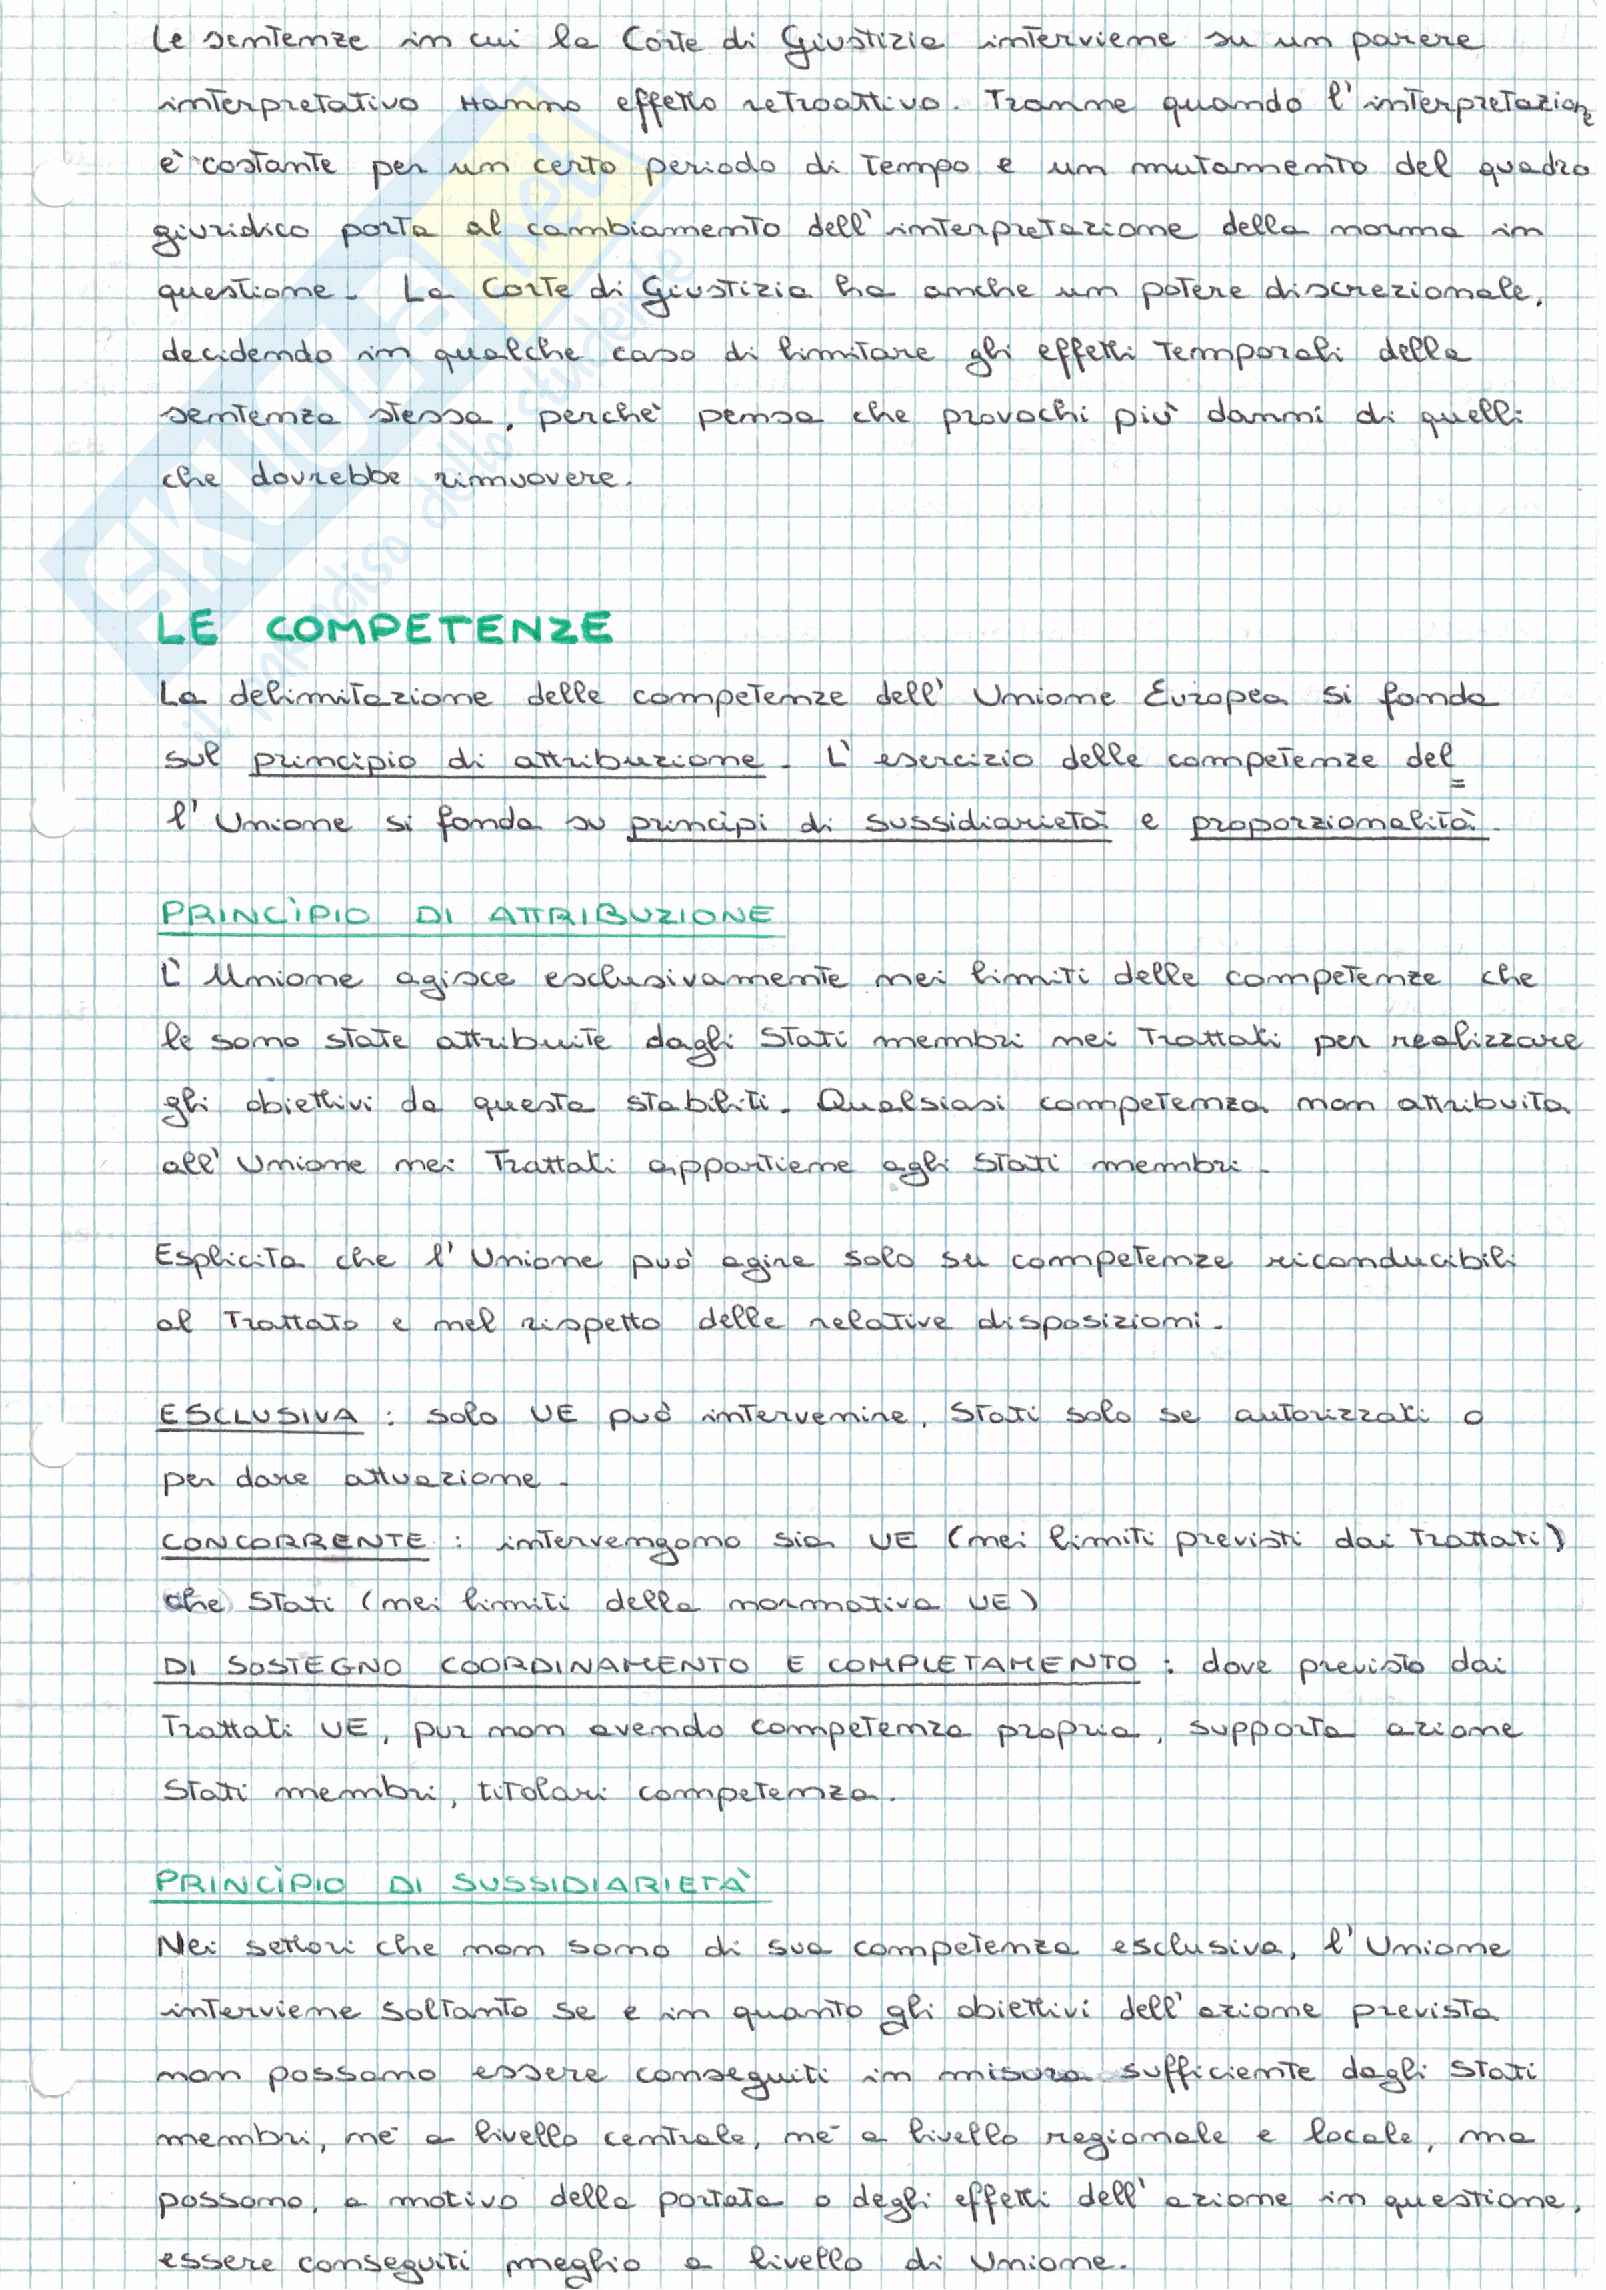 Le sentenze in cui la Corte di Giustizia interviene su un parere
interpretativo Hanno effetto retroattivo. Tranne quando l'interpretazione
è costante per un certo periodo di tempo e un mutamento del quadro
giuridico porta al cambiamento dell'interpretazione della norma in
questione. La Corte di Giustizia ha anche un potere discrezionale,
decidendo in qualche caso di limitare gli effetti temporali della
sentenza stessa, perché pensa che provochi più danni di quelli
che dovrebbe rimuovere.
LE COMPETENZE
La delimitazione delle competenze dell'Unione Europea si fonda
sul principio di attribuzione. L'esercizio delle competenze del=
l'Unione si fonda su principi di sussidiarietà e proporzionalità.
PRINCÌPIO DI ATTRIBUZIONE
L'Unione agisce esclusivamente nei limiti delle competenze che
le sono state attribuite dagli Stati membri nei Trattati per realizzare
gli obiettivi da questa stabiliti. Qualsiasi competenza non attribuita
all'Unione nei Trattati appartiene agli Stati membri.
Esplicita che l'Unione può agire solo su competenze riconducibili
al Trattato e nel rispetto delle relative disposizioni.
ESCLUSIVA : solo UE può intervenire, Stati solo se autorizzati o
per dare attuazione.
CONCORRENTE : intervengono sia UE (nei limiti previsti dai Trattati)
che Stati (nei limiti della normativa UE)
DI SOSTEGNO COORDINAMENTO E COMPLETAMENTO : dove previsto dai
Trattati UE, pur non avendo competenza propria, supporta azione
Stati membri, titolari competenza.
PRINCÌPIO DI SUSSIDIARIETÀ
Nei settori che non sono di sua competenza esclusiva, l'Unione
interviene soltanto se e in quanto gli obiettivi dell'azione prevista
non possono essere conseguiti in misura sufficiente dagli Stati
membri, né a livello centrale, né a livello regionale e locale, ma
possono, a motivo della portata o degli effetti dell'azione in questione,
essere conseguiti meglio a livello di Unione.
SKUOLA.net
il paradiso dello studente